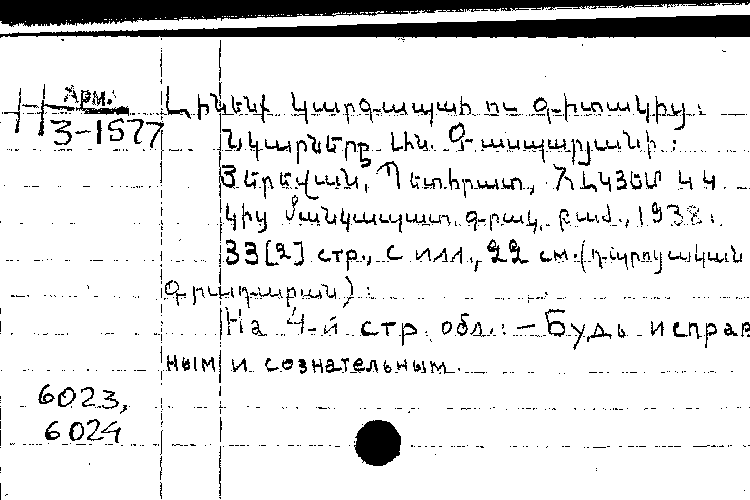 Арм.
3-1577
Լինենք կարգապահ ու գիտակից:
Նկարները Լին. Գասպարյանի:
Յերեվան, Պետհրատ, ՀԼԿՅԵՄ ԿԿ
կից Մանկապատ. գրակ. բաժ., 1938:
33[2] стр., с илл., 22 см. (դպրոցական
գրադարան):
На 4-й стр. обл.: — Будь исправ
ным и сознательным.
6023,
6024